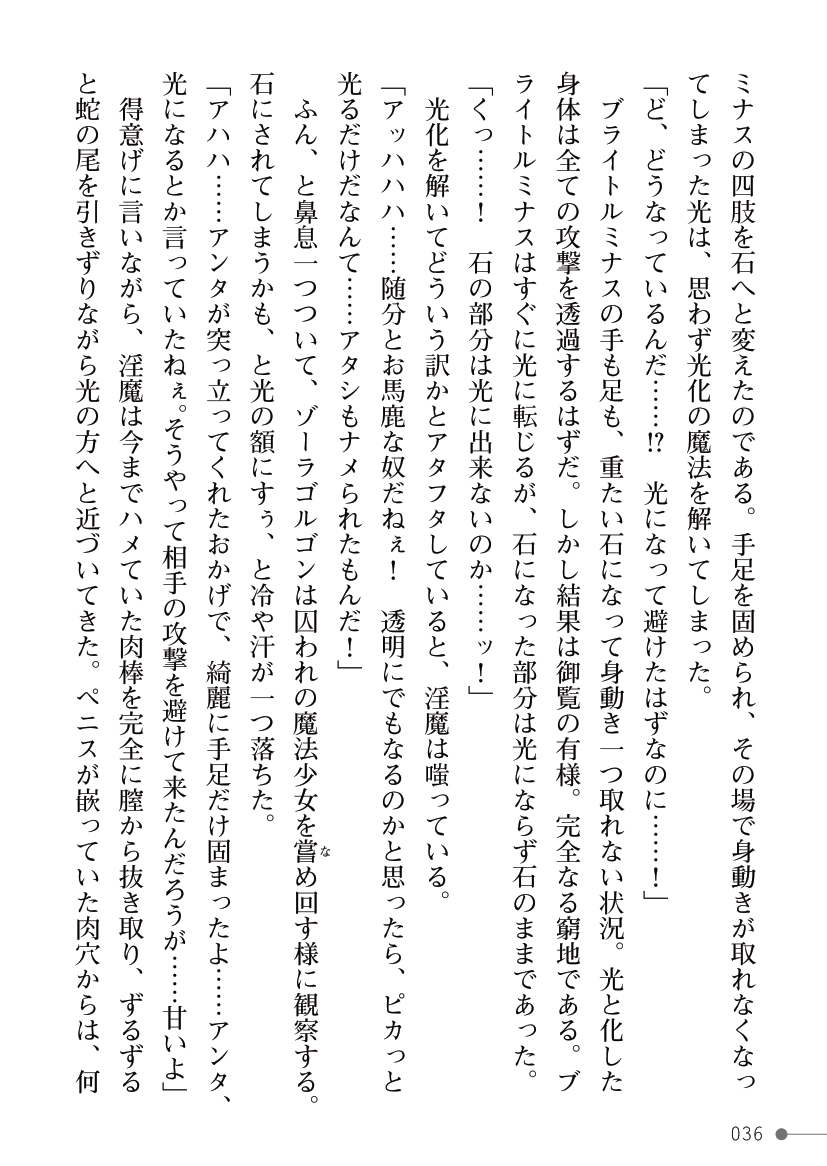 ミナスの四肢を石へと変えたのである。手足を固められ、その場で身動きが取れなくなっ
てしまった光は、思わず光化の魔法を解いてしまった。
「ど、どうなっているんだ……!?　光になって避けたはずなのに……！」
　ブライトルミナスの手も足も、重たい石になって身動き一つ取れない状況。光と化した
身体は全ての攻撃を透過するはずだ。しかし結果は御覧の有様。完全なる窮地である。ブ
ライトルミナスはすぐに光に転じるが、石になった部分は光にならず石のままであった。
「くっ……！　石の部分は光に出来ないのか……ッ！」
　光化を解いてどういう訳かとアタフタしていると、淫魔は嗤っている。
「アッハハハ……随分とお馬鹿な奴だねぇ！　透明にでもなるのかと思ったら、ピカっと
光るだけだなんて……アタシもナメられたもんだ！」
　ふん、と鼻息一つついて、ゾーラゴルゴンは囚われの魔法少女を嘗め回す様に観察する。
な
石にされてしまうかも、と光の額にすぅ、と冷や汗が一つ落ちた。
「アハハ……アンタが突っ立ってくれたおかげで、綺麗に手足だけ固まったよ……アンタ、
光になるとか言っていたねぇ。そうやって相手の攻撃を避けて来たんだろうが……甘いよ」
　得意げに言いながら、淫魔は今までハメていた肉棒を完全に膣から抜き取り、ずるずる
と蛇の尾を引きずりながら光の方へと近づいてきた。ペニスが嵌っていた肉穴からは、何
036